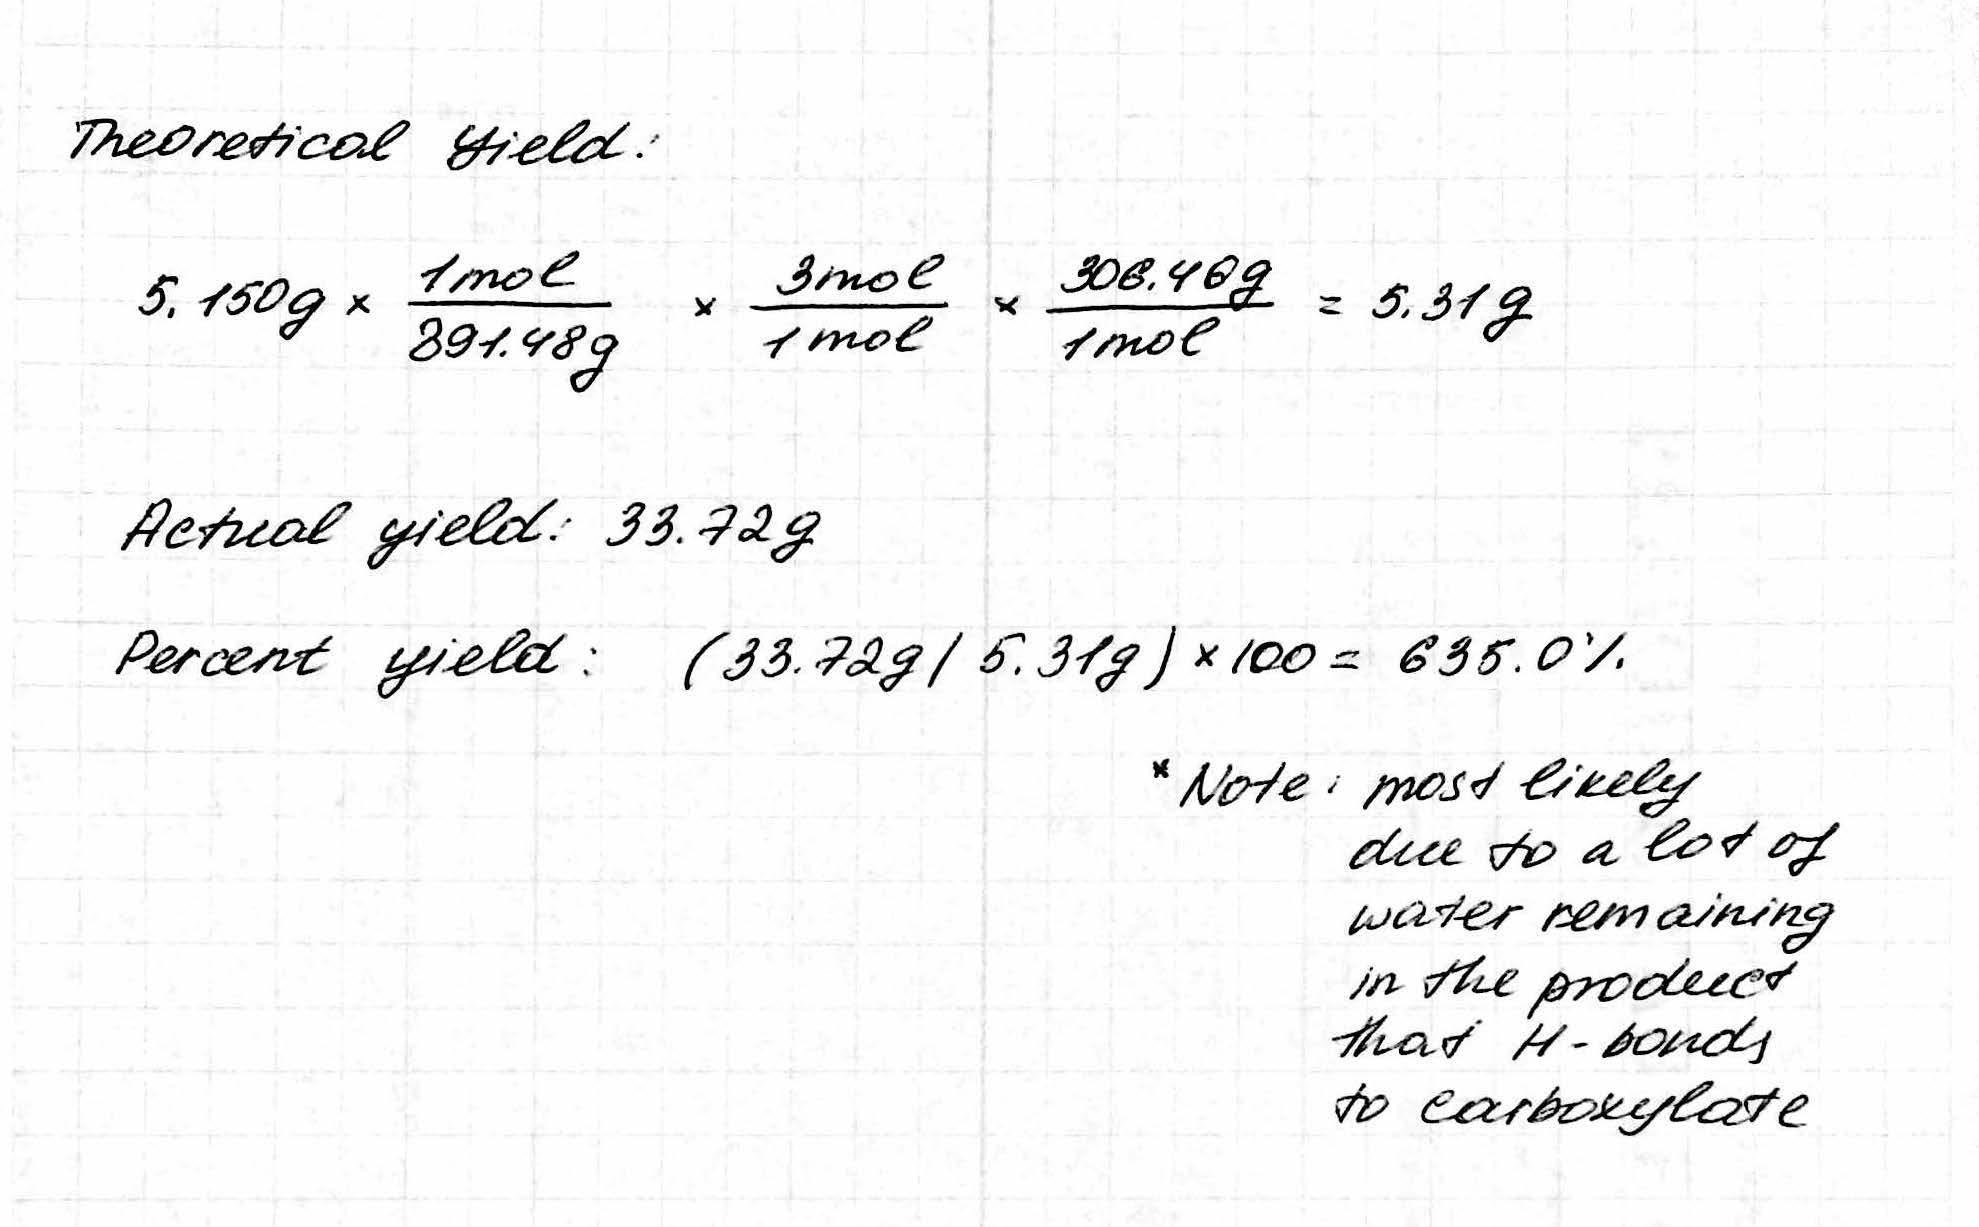 Theoretical Yield:
5.150g × 1mol / 891.48g × 3mol / 1mol × 306.46g / 1mol = 5.31g
Actual yield: 33.72g
Percent yield: (33.72g / 5.31g) × 100 = 635.0%
*Note: most likely
due to a lot of
water remaining
in the product
that H-bonds
to carboxylate